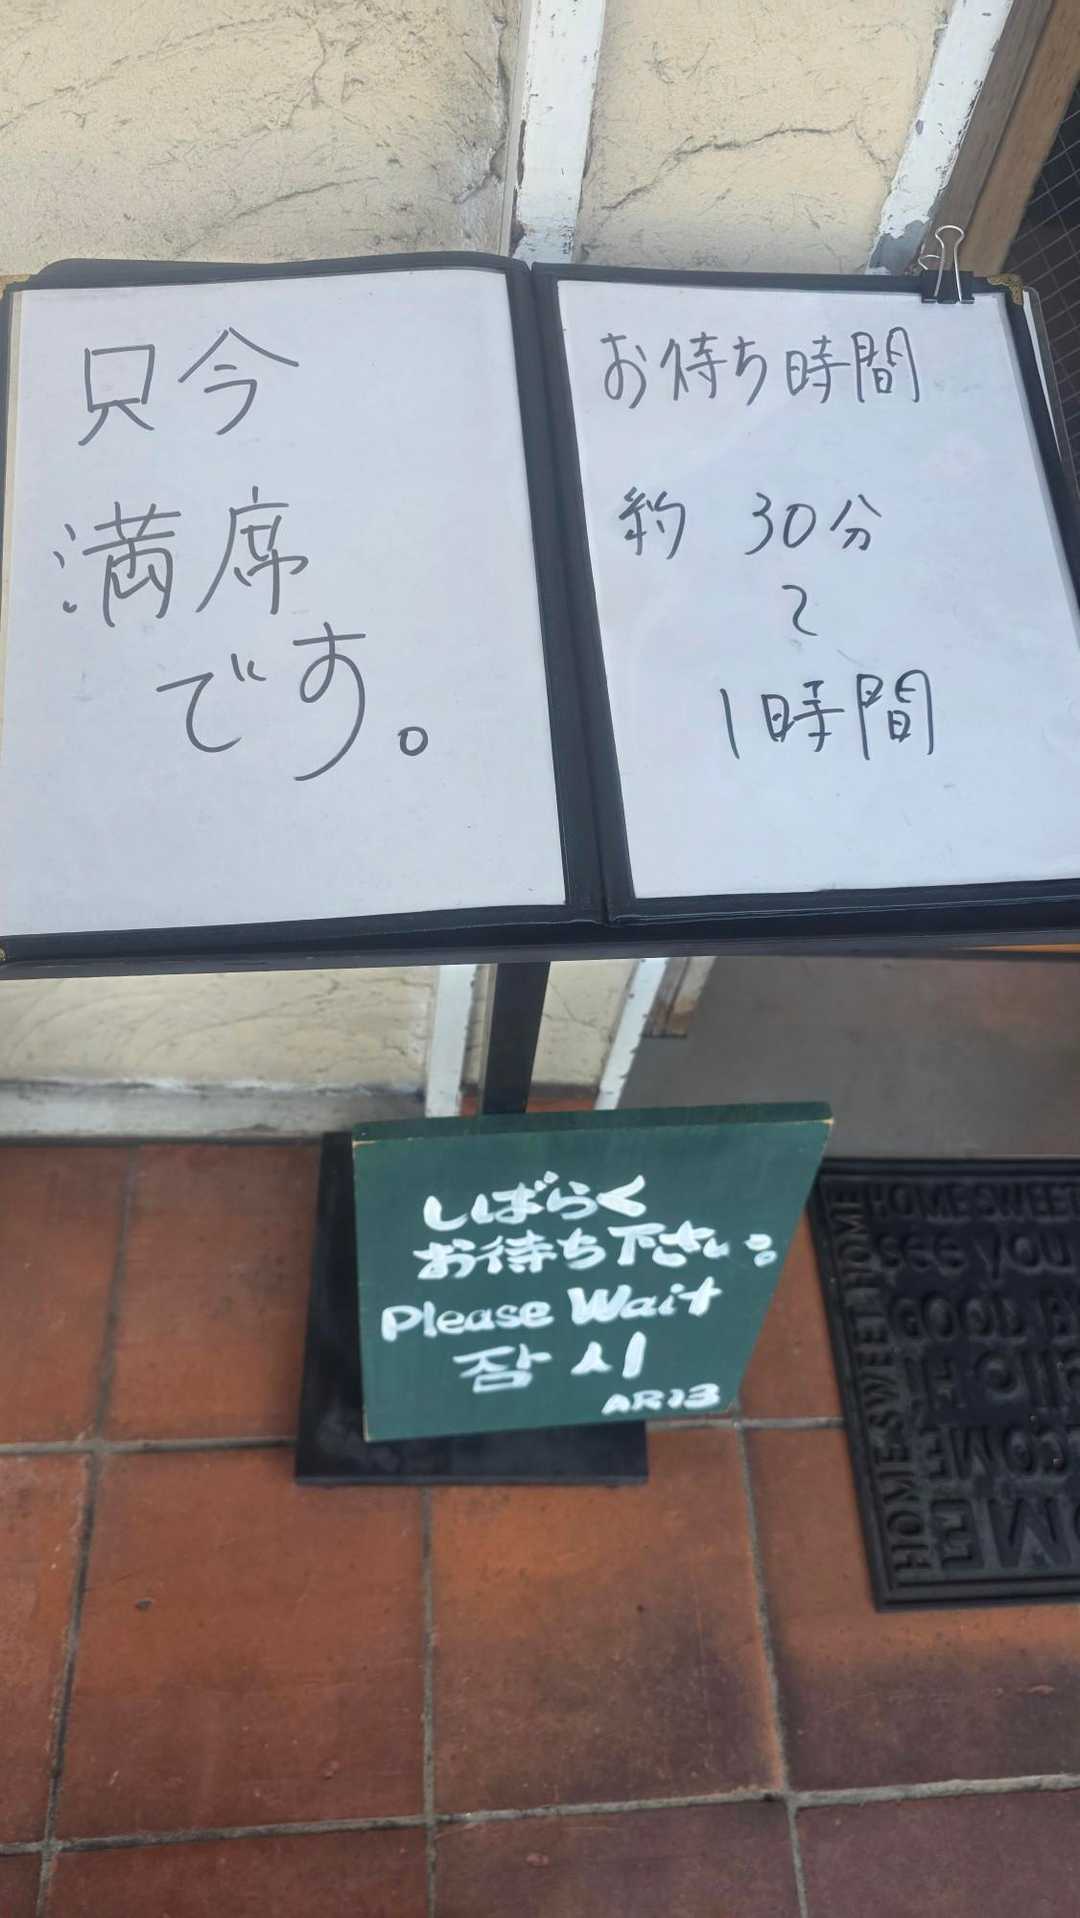 只今
満席
です。
お待ち時間
約 30分
〜
1時間
しばらく
お待ち下さい。
Please Wait
잠시
HOME SWEET
HOME SWEET HOME
see you
GOOD